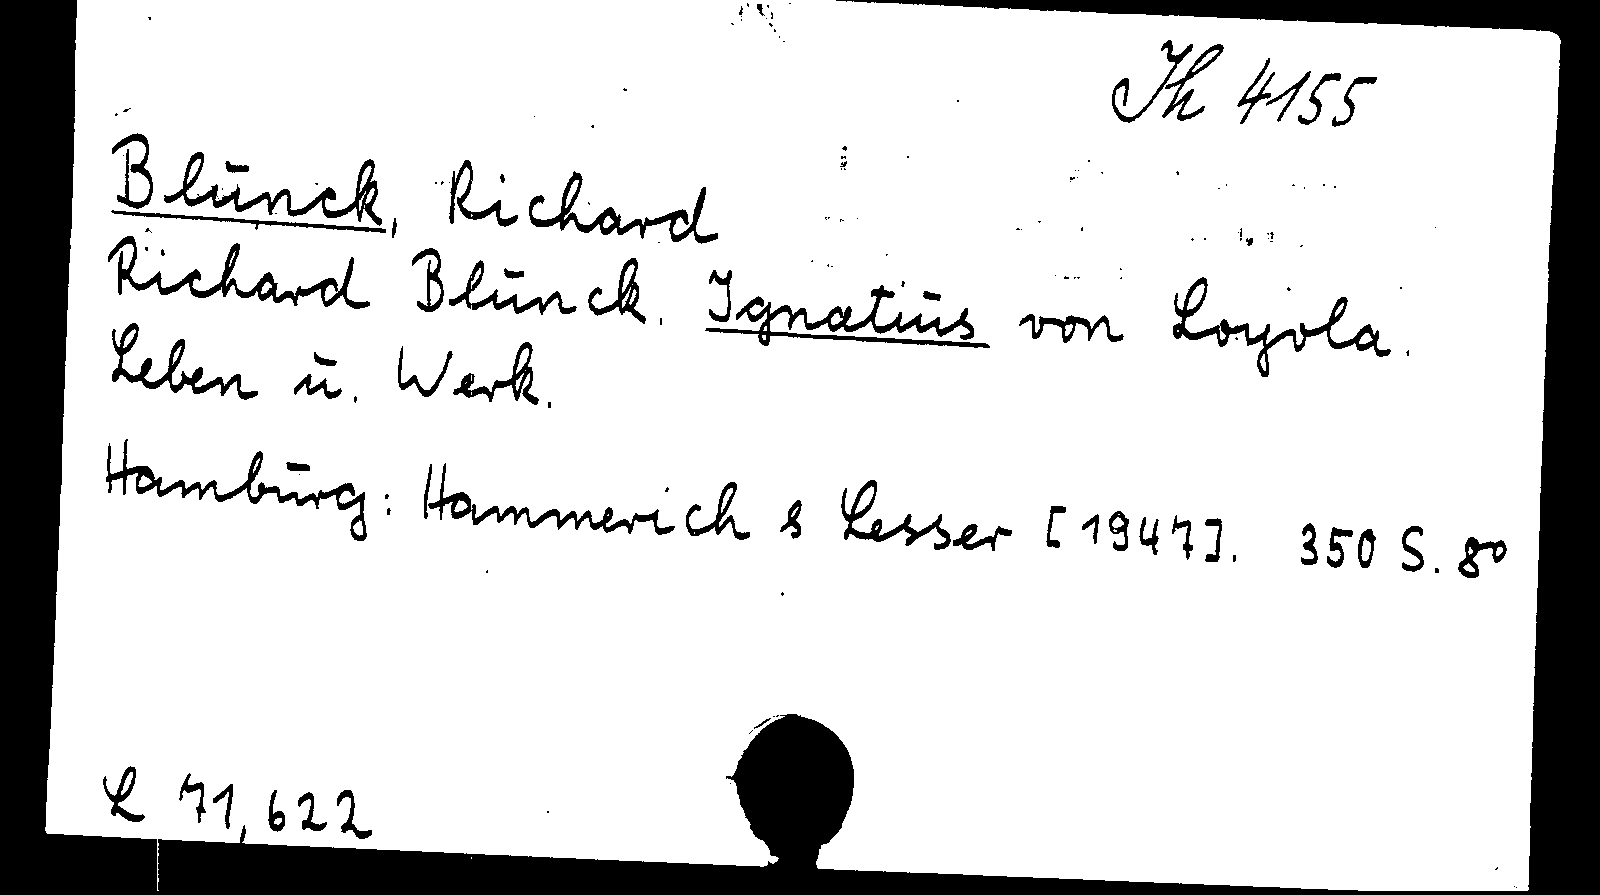 Th 4155
Blunck, Richard
Richard Blunck. Ignatius von Loyola.
Leben u. Werk.
Hamburg: Hammerich & Lesser [1947]. 350 S. 8°
L 71,622